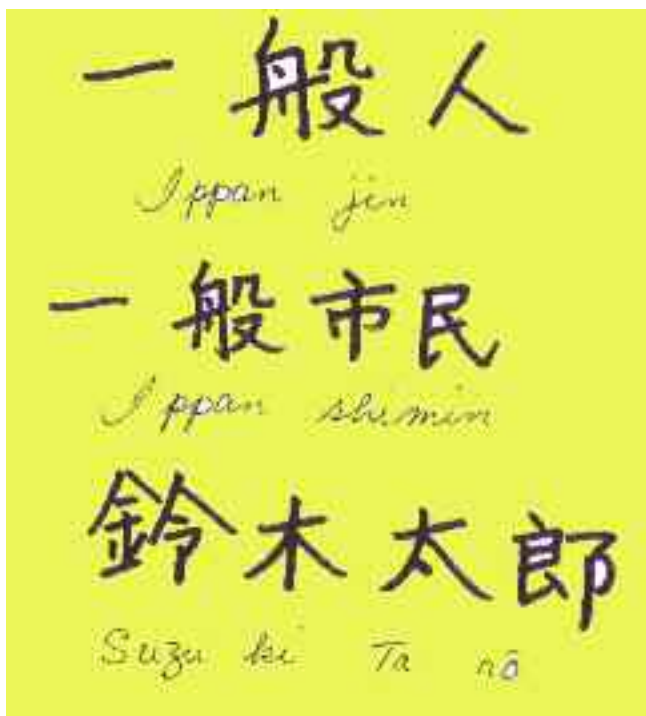 一般人
Ippan jin
一般市民
Ippan shimin
鈴木太郎
Suzu ki Ta rô